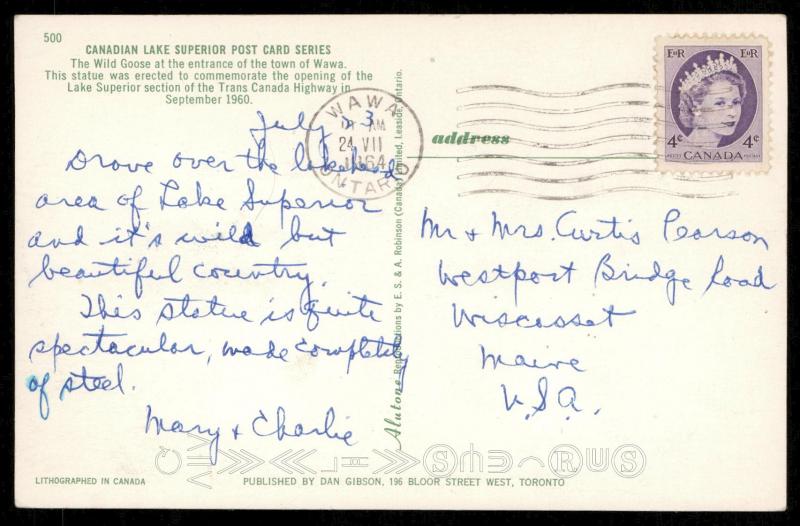 500
CANADIAN LAKE SUPERIOR POST CARD SERIES
The Wild Goose at the entrance of the town of Wawa.
This statue was erected to commemorate the opening of the
Lake Superior section of the Trans Canada Highway in
September 1960.
July 23
Drove over the lakehead
area of Lake Superior
and it's wild but
beautiful country.
This statue is quite
spectacular, made completely
of steel.
Mary & Charlie
WAWA
AM
24 VII
1964
ONTARIO
address
EIIR EIIR
4¢ 4¢
POSTES CANADA POSTAGE
Mr & Mrs. Curtis Pearson
Westport Bridge Road
Wiscasset
Maine
U.S.A.
Alutone Reproductions by E. S. & A. Robinson (Canada) Limited, Leaside, Ontario.
LITHOGRAPHED IN CANADA
PUBLISHED BY DAN GIBSON, 196 BLOOR STREET WEST, TORONTO